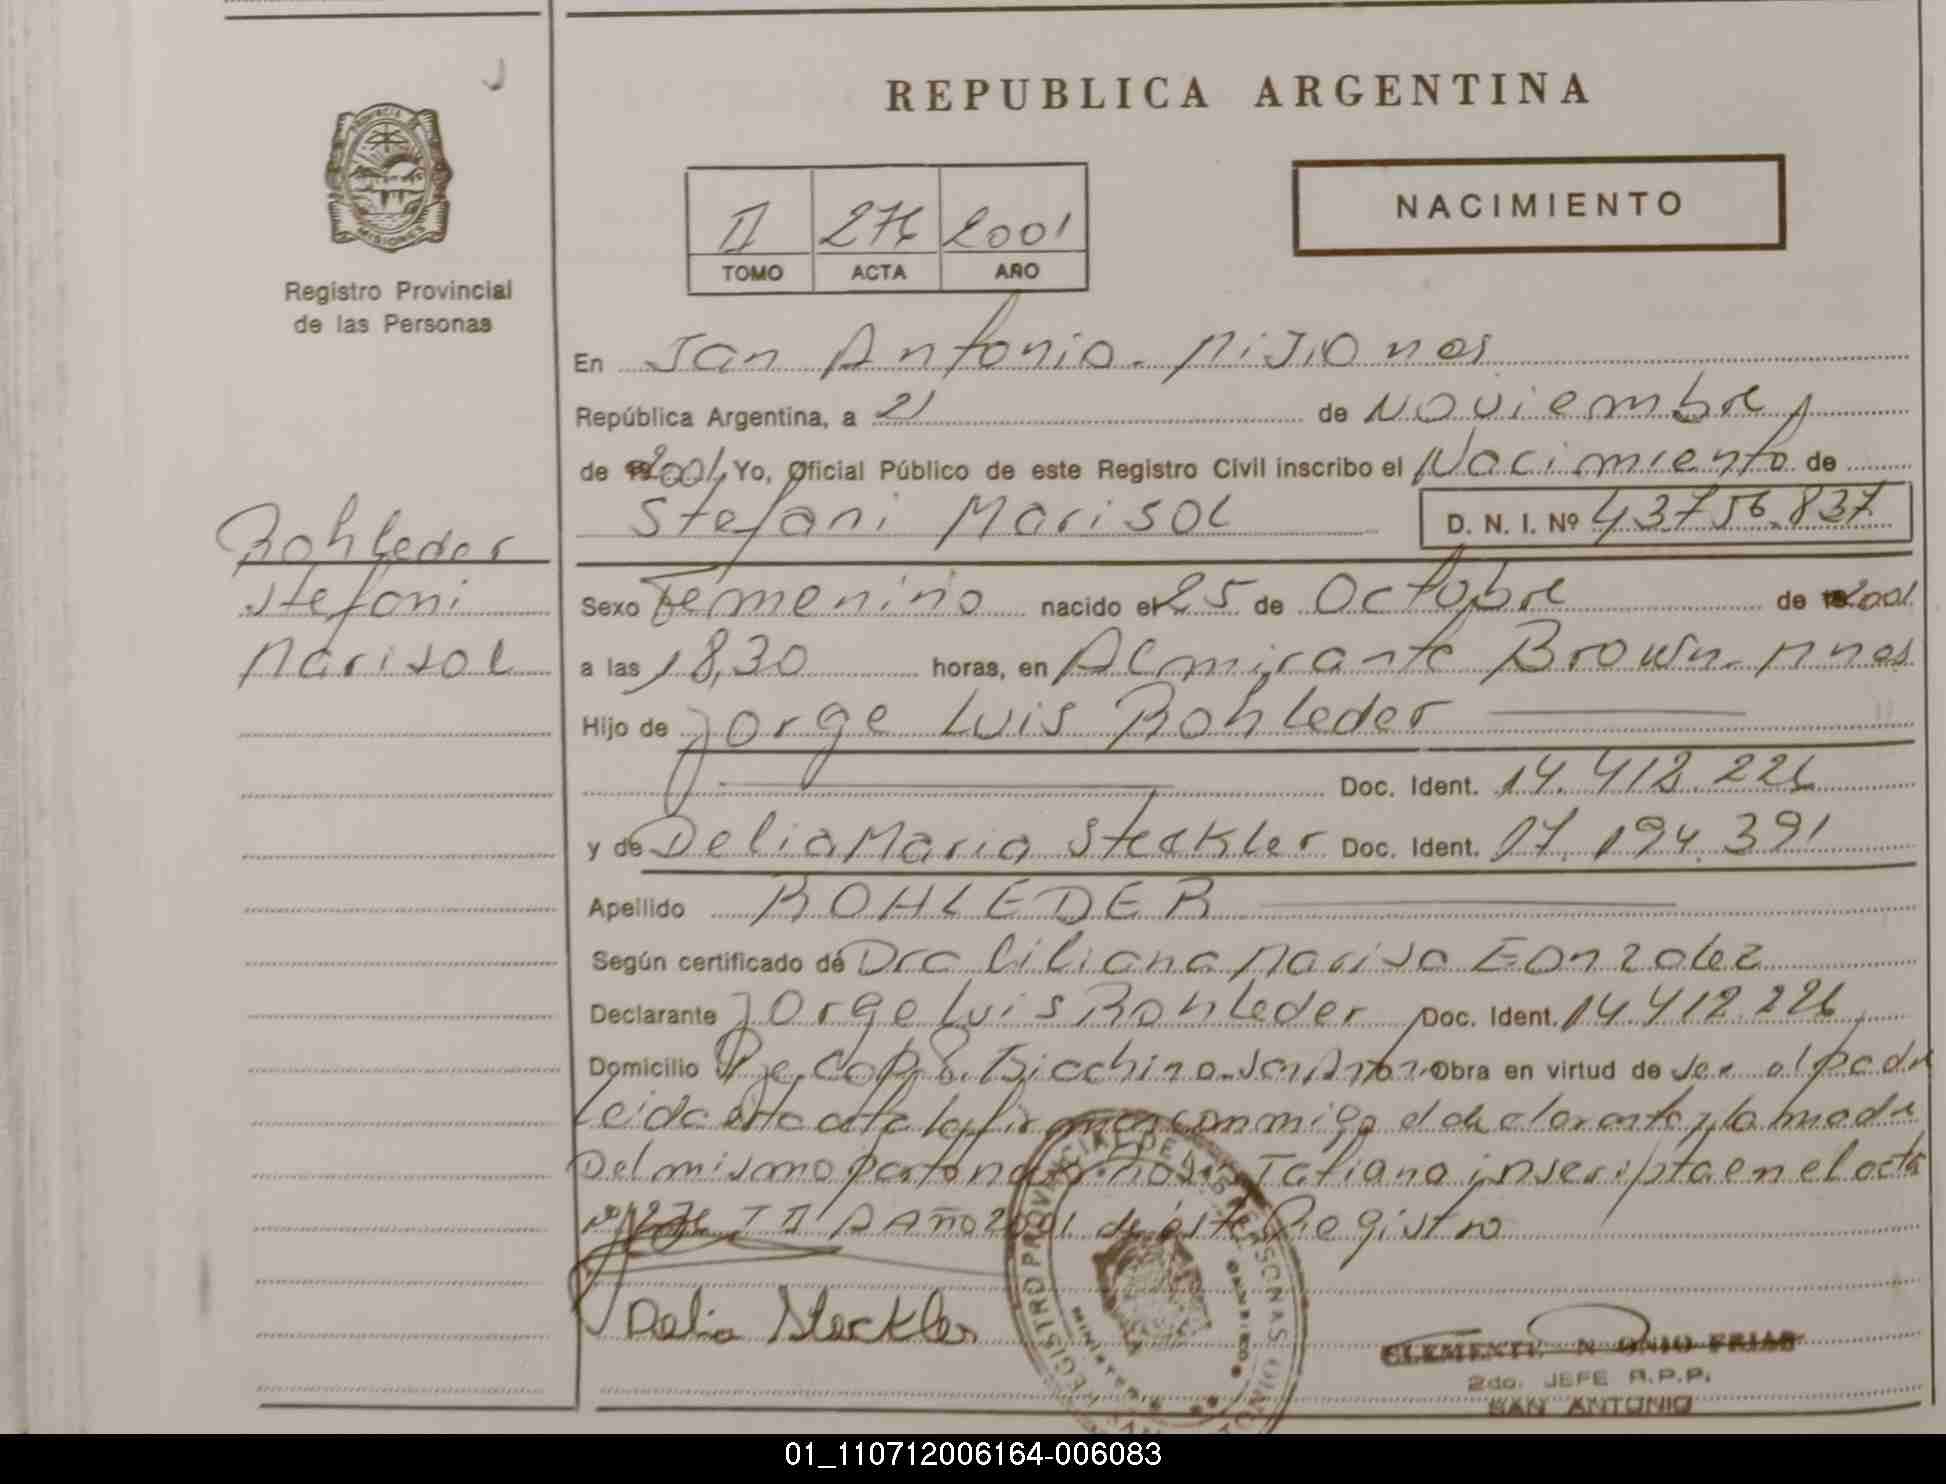 REPUBLICA ARGENTINA
PROVINCIA DE
MISIONES
Registro Provincial
de las Personas
II 276 2001
TOMO ACTA AÑO
NACIMIENTO
En San Antonio - Misiones
República Argentina, a 21 de Noviembre
de 2001, Yo, Oficial Público de este Registro Civil inscribo el Nacimiento de
Stefani Marisol D. N. I. Nº 43756.837
Rohleder
Stefani
Marisol
Sexo Femenino nacido el 25 de Octubre de 2001
a las 18,30 horas, en Almirante Brown - Mnes
Hijo de Jorge Luis Rohleder
Doc. Ident. 14.412.226
y de Delia Maria Steckler Doc. Ident. 17.194.391
Apellido ROHLEDER
Según certificado de Dra Liliana Marisa Gonzalez
Declarante Jorge Luis Rohleder Doc. Ident. 14.412.226
Domicilio Obra en virtud de ser el padre
Leida esta acta la firman conmigo el declarante y la madre
Del mismo parto nació Tatiana inscripta en el acta
Nº 276 T II A Año 2001 de éste Registro
Delia Steckler
REGISTRO PROVINCIAL DE LAS PERSONAS
CLEMENTE N ONIO FRIAS
2do. JEFE R.P.P.
SAN ANTONIO
01_110712006164-006083